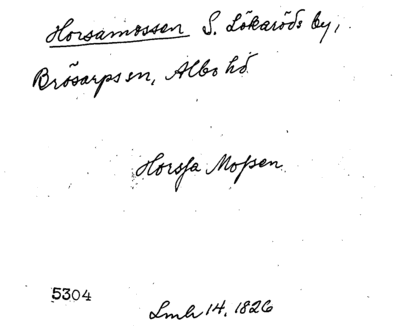 Horsamossen S. Lökaröds by,
Brösarps sn, Albo hd
Horsſa Moſsen
5304
Lmh 14. 1826